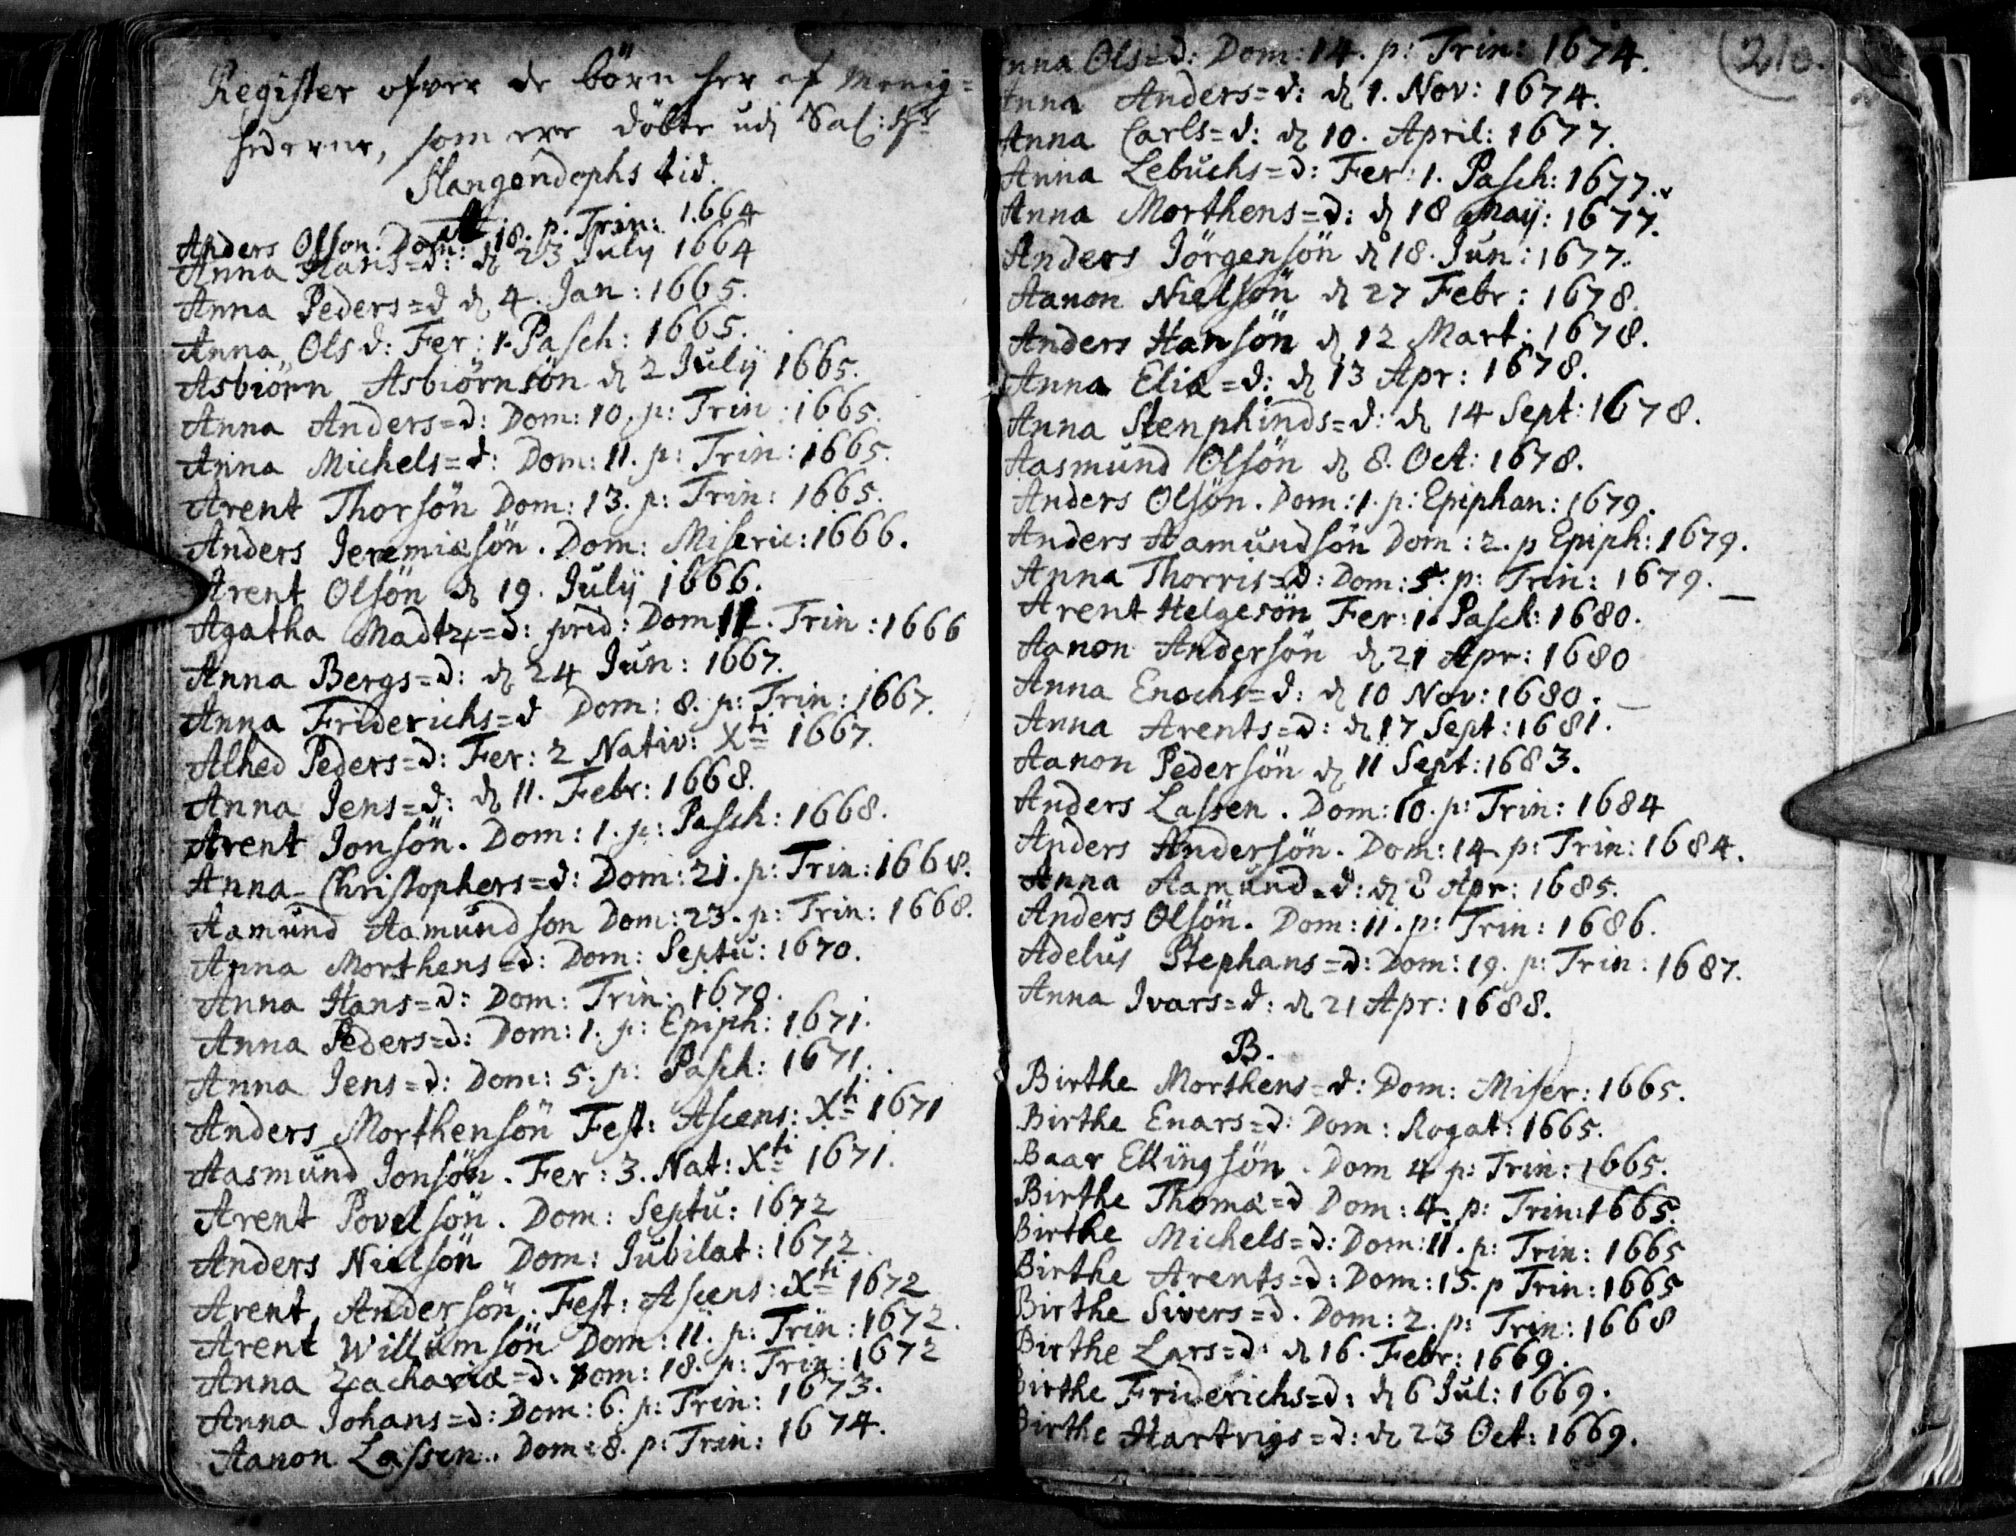 Register ofver de börn her af Menig=
hederne, som ere döbte udj Sal: Hr
Slangendophs tid.
Anders Olson. Dom: 18. p. Trin: 1664
Anna Hans=d: d 23 July 1664
Anna Peders=d d 4. Jan: 1665.
Anna Ols d: Fer: 1. Pasch: 1665.
Asbiörn Asbiörnsön d 2 Julÿ 1665.
Anna Anders=d: Dom: 10. p: Trin: 1665.
Anna Michels=d: Dom: 11. p: Trin: 1665.
Arent Thorsön Dom: 13. p: Trin: 1665.
Anders Jeremiæsön. Dom: Miseric: 1666.
Arent Olsön d 19. Julÿ 1666.
Agatha Madtz=d: prid: Dom Trin: 1666
Anna Bergs=d: d 24 Jun: 1667.
Anna Friderichs=d Dom: 8. p: Trin: 1667.
Alhed Peders=d: Fer: 2 Nativ: Xti 1667.
Anna Jens=d: d 11. Febr: 1668.
Arent Jonsön. Dom: 1. p: Pasch: 1668.
Anna Christophers=d: Dom: 21. p: Trin: 1668.
Aamund Aamundson Dom: 23. p: Trin: 1668.
Anna Morthens=d: Dom: Septu: 1670.
Anna Hans=d: Dom: Trin: 1670.
Anna Peders=d: Dom: 1. p: Epiph: 1671.
Anna Jens=d: Dom: 5. p: Pasch: 1671.
Anders Morthensön Fest: Ascens: Xti 1671
Aasmund Jonsön. Fer: 3. Nat: Xti 1671.
Arent Povelsön. Dom: Septu: 1672
Anders Nielsön Dom: Jubilat: 1672.
Arent Andersön. Fest: Ascens: Xti 1672
Arent Willumsön Dom: 11. p: Trin: 1672.
Anna Zachariæ=d: Dom: 18. p: Trin: 1672
Anna Johans=d: Dom: 6. p: Trin: 1673.
Aanon Lassen. Dom: 8. p: Trin: 1674.
210.
Anna Ols=d: Dom: 14. p: Trin: 1674.
Anna Anders=d: d 1. Nov: 1674.
Anna Carls=d: d 10. April: 1677.
Anna Lebuchs=d: Fer: 1. Pasch: 1677.
Anna Morthens=d: d 18 Maÿ: 1677.
Anders Jörgensön d 18. Jun: 1677.
Aanon Nielsön d 27 Febr: 1678.
Anders Hansön d 12 Mart: 1678.
Anna Eliæ=d: d 13 Apr: 1678.
Anna Stenphinds=d: d 14 Sept: 1678.
Aasmund Olsön d 8. Oct: 1678.
Anders Olsön. Dom: 1. p: Epiphan: 1679.
Anders Aamundsön Dom: 2. p Epiph: 1679.
Anna Thorris=d: Dom: 5. p: Trin: 1679.
Arent Helgesön Fer: 1. Pasch: 1680.
Aanon Andersön d 21 Apr: 1680
Anna Enochs=d: d 10 Nov: 1680.
Anna Arents=d: d 17 Sept: 1681.
Aanon Pedersön d 11 Sept: 1683.
Anders Lassen. Dom: 10. p: Trin: 1684
Anders Andersön. Dom: 14 p: Trin: 1684.
Anna Aamund=d: d 8 Apr: 1685.
Anders Olsön. Dom: 11. p: Trin: 1686.
Adelus Stephans=d: Dom: 19. p: Trin: 1687.
Anna Ivars=d: d 21 Apr: 1688.
B.
Birthe Morthens=d: Dom: Miser: 1665.
Birthe Enars=d: Dom: Rogat: 1665.
Baar Ellingsön. Dom 4 p: Trin: 1665.
Birthe Thomæ=d Dom: 4. p: Trin: 1665.
Birthe Michels=d: Dom: 11. p: Trin: 1665
Birthe Arents=d: Dom: 15. p Trin: 1665
Birthe Sivers=d. Dom: 2. p: Trin: 1668
Birthe Lars=d. d 16. Febr: 1669.
Birthe Friderichs=d: d 6 Jul: 1669.
Birthe Hartvigs=d: d 23 Oct: 1669.